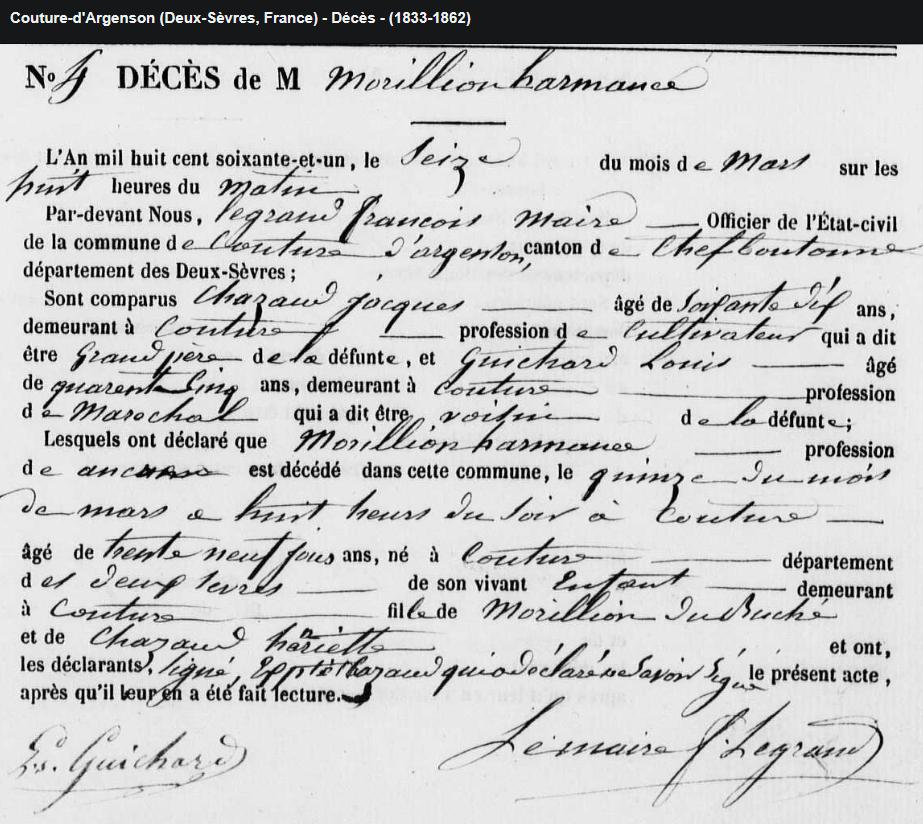 Couture-d'Argenson (Deux-Sèvres, France) - Décès - (1833-1862)
No 4 DÉCÈS de M Morillion harmance
L'An mil huit cent soixante-et-un, le Seize du mois de Mars sur les
huit heures du matin
Par-devant Nous, legrand françois maire Officier de l'État-civil
de la commune de Couture d'argenson, canton de Chef boutonne
département des Deux-Sèvres ;
Sont comparus Chazaud Jacques âgé de Soixante dix ans,
demeurant à Couture profession de Cultivateur qui a dit
être Grand père de la défunte, et Guichard Louis âgé
de quarente Cinq ans, demeurant à Couture profession
de Marechal qui a dit être voisin de la défunte;
Lesquels ont déclaré que Morillion harmance profession
de est décédé dans cette commune, le quinze du mois
de mars a huit heurs du Soir à Couture
âgé de trente neuf jous ans, né à Couture département
des deux sevres de son vivant Enfant demeurant
à Couture fille de Morillion
et de Chazaud hariette et ont,
les déclarants, Signé, Chazaud qui a déclaré ne Savoir Signé le présent acte,
après qu'il leur en a été fait lecture.
Ls. Guichard Le maire f. Legrand